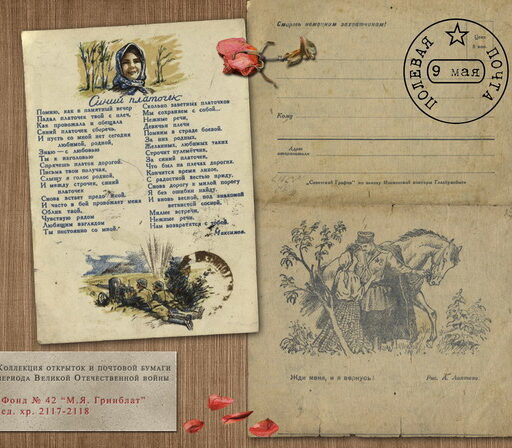 Синий платочек
Помню, как в памятный вечер
Падал платочек твой с плеч,
Как провожала и обещала
Синий платочек сберечь.
И пусть со мной нет сегодня
любимой, родной,
Знаю — с любовью
Ты к изголовью
Спрячешь платок дорогой.
Письма твои получая,
Слышу я голос родной,
И между строчек, синий
платочек
Снова встает предо мной.
И часто в бой провожает меня
Облик твой,
Чувствую рядом
Любящим взглядом
Ты постоянно со мной.
Сколько заветных платочков
Мы сохраняем с собой...
Нежные речи,
Девичьи плечи
Помним в страде боевой.
За них родных,
Желанных, любимых таких
Строчит пулемётчик,
За синий платочек,
Что был на плечах дорогих.
Кончится время лихое,
С радостной вестью приду,
Снова дорогу к милой порогу
Я без ошибки найду.
И вновь весной, под знакомой
ветвистой сосной,
Милые встречи,
Нежные речи,
Нам возвратятся с тобой.
Максимов.
Смерть немецким захватчикам!
Цена
ПОЛЕВАЯ ПОЧТА
9 мая
Кому
Адрес
отправителя
„Советский График“
Жди меня, и я вернусь!
Рис.
Коллекция открыток и почтовой бумаги
периода Великой Отечественной войны
Фонд № 42 “М.Я. Гринблат”
ед. хр. 2117-2118